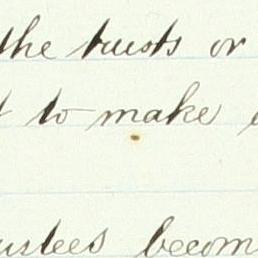 the trusts or
to make
ustees becom